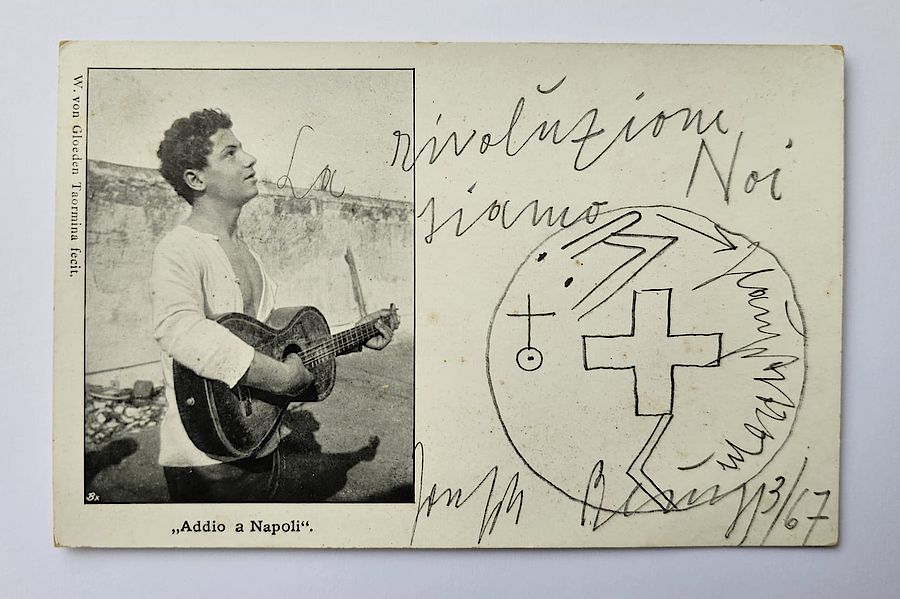 W. von Gloeden Taormina fecit.
La rivoluzione
siamo Noi
Joseph Beuys
3/67
Bx
„Addio a Napoli“.